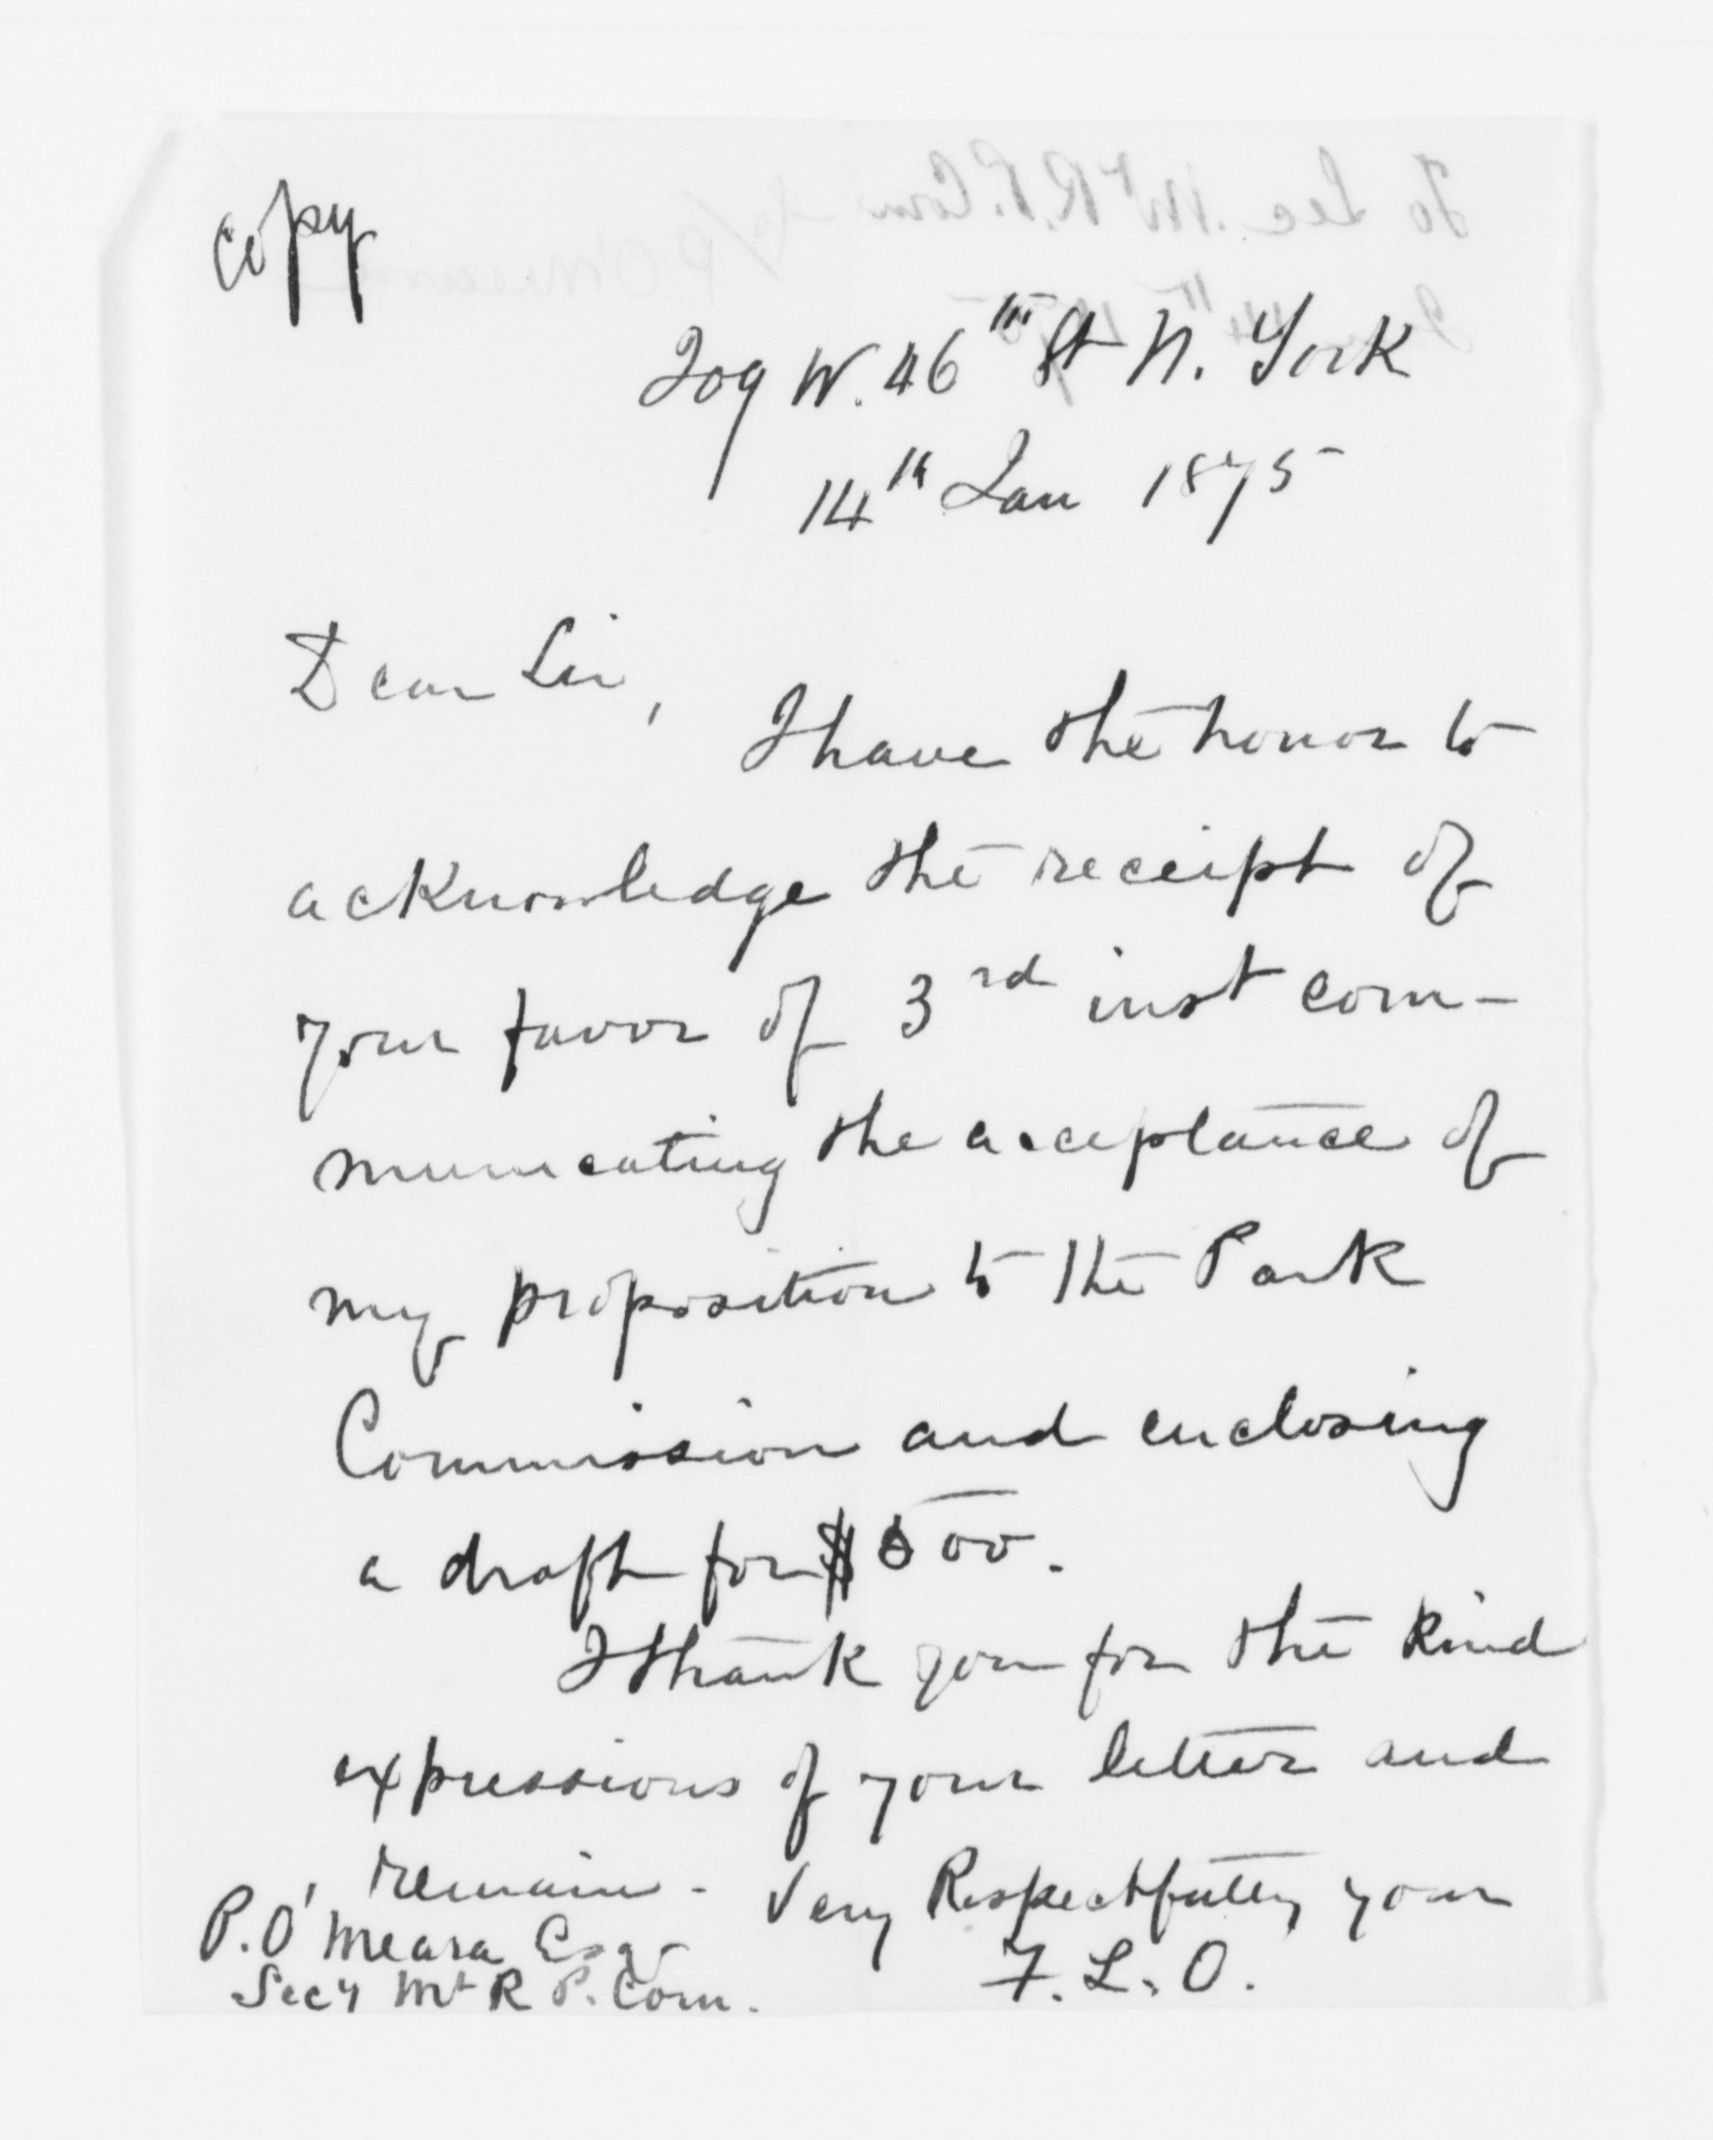 Copy
209 W. 46th St N. York
14th Jan 1875
Dear Sir,
I have the honor to
acknowledge the receipt of
your favor of 3rd inst com-
municating the acceptance of
my proposition to the Park
Commission and enclosing
a draft for $500.
I thank you for the kind
expressions of your letter and
remain - Very Respectfully your
F. L. O.
P. O'Meara Esq
Secy Mt R P. Com.
To Sec. Mt R. P. Com
P O'Meara